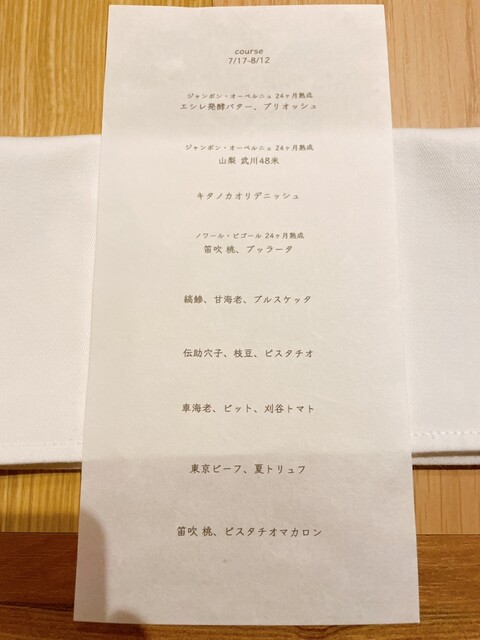 course
7/17-8/12
ジャンボン・オーベルニュ 24ヶ月熟成
エシレ発酵バター、ブリオッシュ
ジャンボン・オーベルニュ 24ヶ月熟成
山梨 武川48米
キタノカオリデニッシュ
ノワール・ビゴール 24ヶ月熟成
笛吹 桃、ブッラータ
縞鯵、甘海老、ブルスケッタ
伝助穴子、枝豆、ピスタチオ
車海老、ビット、刈谷トマト
東京ビーフ、夏トリュフ
笛吹 桃、ピスタチオマカロン